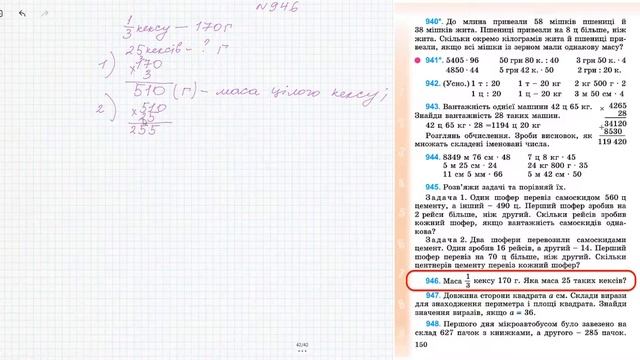 №946
1/3 кексу – 170 г
25 кексів – ? г
1) 170
× 3
510 (г) – маса цілого кексу;
2) × 510
25
255
940*. До млина привезли 58 мішків пшениці й
38 мішків жита. Пшениці привезли на 8 ц більше, ніж
жита. Скільки окремо кілограмів жита й пшениці при-
везли, якщо всі мішки із зерном мали однакову масу?
941*. 5405 · 96 50 грн 80 к. : 40 3 грн 50 к. · 4
4850 · 44 5 грн 42 к. · 50 2 грн : 20 к.
942. (Усно.) 1 т : 20 1 т – 20 кг 2 кг 500 г · 2
1 ц : 20 1 ц – 20 кг 3 м 50 см · 4
943. Вантажність однієї машини 42 ц 65 кг.
Знайди вантажність 28 таких машин.
42 ц 65 кг · 28 =1194 ц 20 кг
Розглянь обчислення. Зроби висновок, як
множать складені іменовані числа.
× 4265
28
+ 34120
8530
119 420
944. 8349 м 76 см · 48 7 ц 8 кг · 45
5 м 25 см · 24 24 кг 800 г · 35
11 см 5 мм · 66 5 м 42 см · 50
945. Розв’яжи задачі та порівняй їх.
Задача 1. Один шофер перевіз самоскидом 560 ц
цементу, а інший – 490 ц. Перший шофер зробив на
2 рейси більше, ніж другий. Скільки рейсів зробив
кожний шофер, якщо вантажність самоскидів одна-
кова?
Задача 2. Два шофери перевозили самоскидами
цемент. Один зробив 16 рейсів, а другий – 14. Перший
шофер перевіз на 70 ц більше, ніж другий. Скільки
центнерів цементу перевіз кожний шофер?
946. Маса 1/3 кексу 170 г. Яка маса 25 таких кексів?
947. Довжина сторони квадрата a см. Склади вирази
для знаходження периметра і площі квадрата. Знайди
значення виразів, якщо a = 36.
948. Першого дня мікроавтобусом було завезено на
склад 627 пачок з книжками, а другого – 285 пачок.
150
42/42